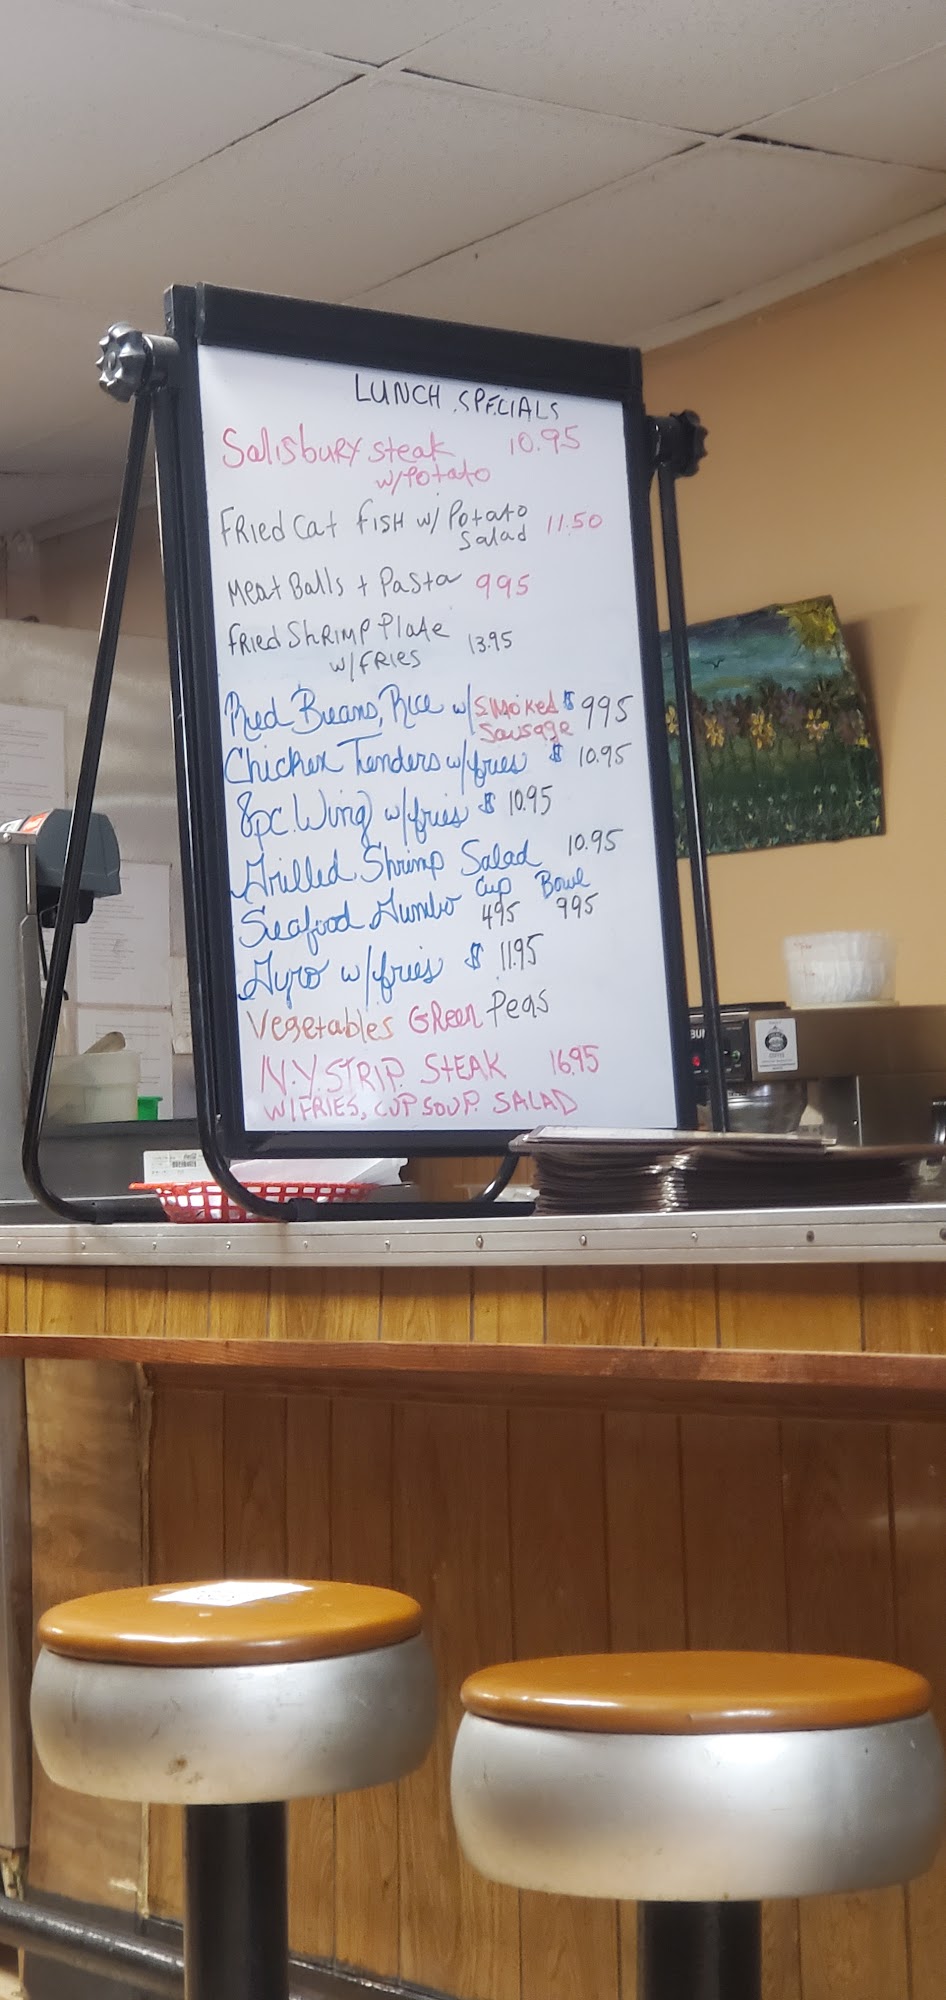 LUNCH SPECIALS
Salisbury steak 10.95
w/Potato
FRied Cat FISH w/ Potato 11.50
Salad
Meat Balls + Pasta 995
FRied ShRIMP Plate 13.95
w/FRIES
Red Beans, Rice w/Smoked $ 995
Sausage
Chicken Tenders w/fries $ 10.95
8pc. Wing w/fries $ 10.95
Grilled Shrimp Salad 10.95
Seafood Gumbo Cup Bowl
495 995
Gyro w/fries $ 11.95
Vegetables GReen Peas
N.Y. STRIP STEAK 1695
W/FRIES, CUP SOUP. SALAD
BUN